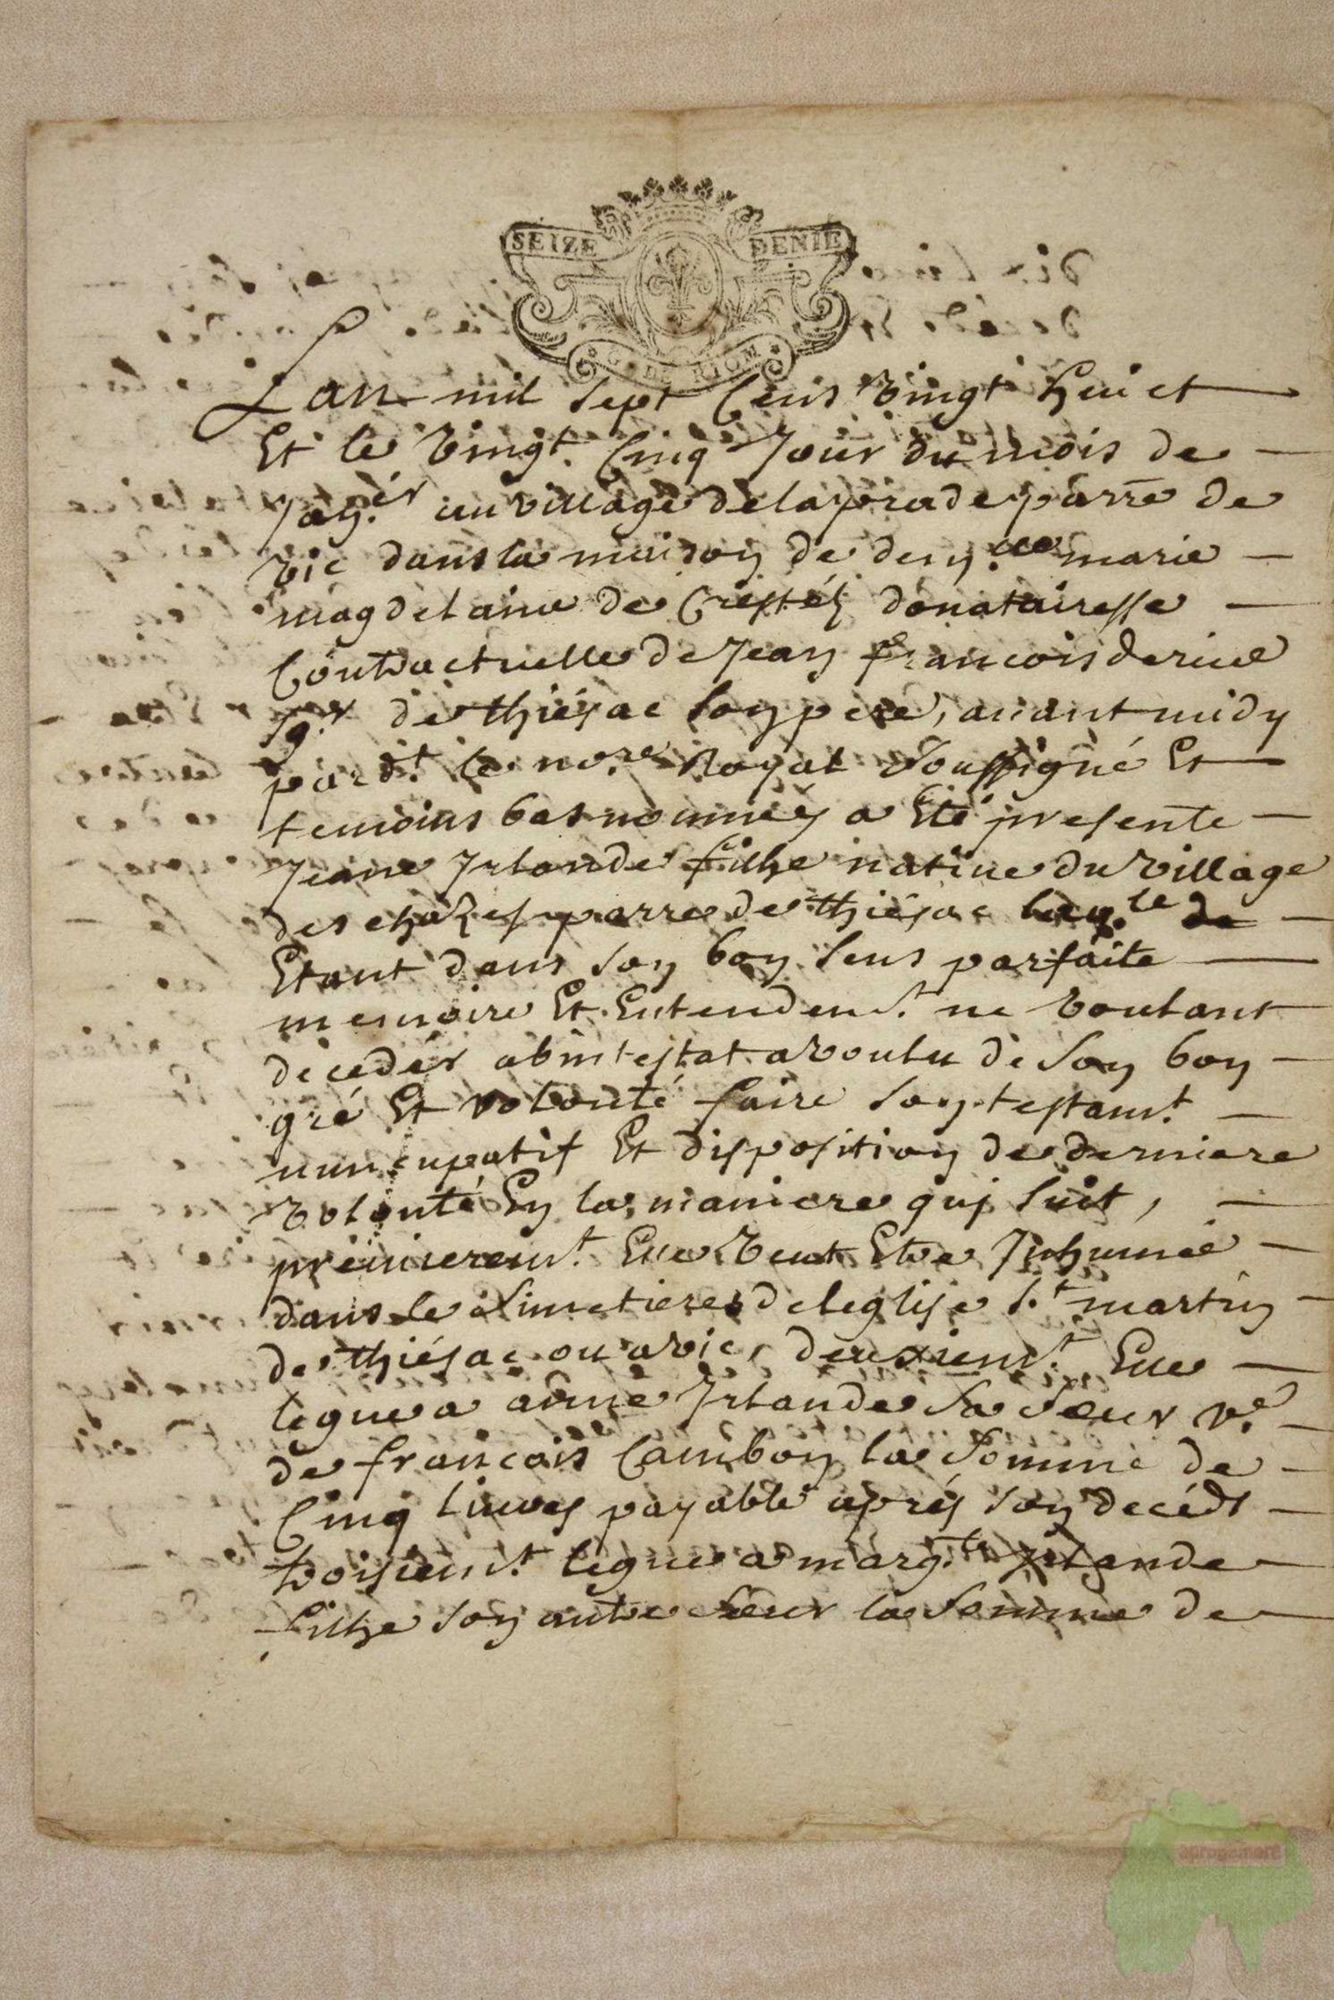 SEIZE DENIE
G. DE RIOM
Lan mil sept Cens vingt huict
Et le vingt Cinq Jour du mois de
Janv.er au village de laprade parre de
vic dans la maison de dem.lle marie
magdelaine de donatairesse
Contractuelle de Jean francois derive
sg.r de thiésac son pere, avant midy
pard.t le no.re Royal soussigné Et
temoins bas nommés a Eté presente
Jeane Irlande filhe native du village
des chazes parre de thiésac laq.le de
Etant dans son bon sens parfaite
memoire Et Entendem.t ne voulant
decedér abintestat a voulu de son bon
gré Et volonté faire son testam.t
nuncupatif Et disposition de derniere
volonté En la maniere qui suit,
premierem.t Elle veut Etre Inhumée
dans le Simetiere de leglise S.t martin
de thiésac ou a vic, deuxiem.t Elle
legue a anne Irlande sa soeur v.e
de francois Cambon la somme de
Cinq livres payable aprés son decéds
troisiem.t legue a marg.te Irlande
filhe son autre soeur la somme de
aprogemere